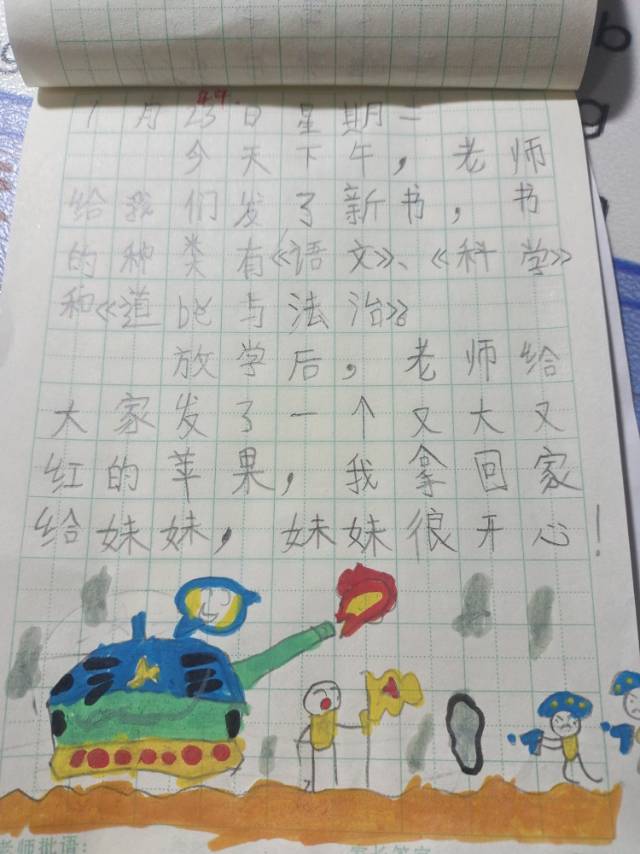 1月23日星期一
今天下午，老师
给我们发了新书，书
的种类有《语文》、《科学》
和《道de与法治》。
放学后，老师给
大家发了一个又大又
红的苹果，我拿回家
给妹妹，妹妹很开心！
老师批语：